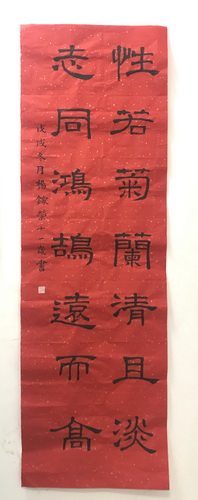 性若菊蘭清且淡
志同鴻鵠遠而高
戊戌冬月楊鎵縈十二歲書